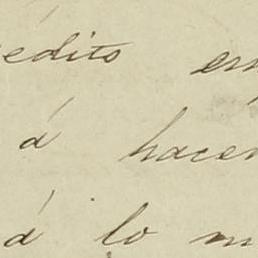 édito en
á hacer
á lo m